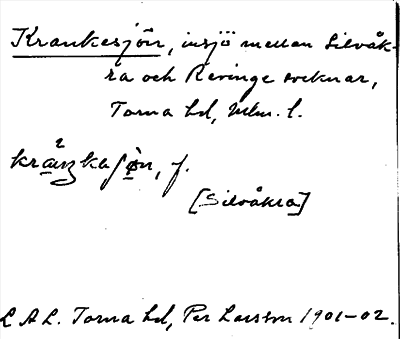 Krankesjön, insjö mellan Silvåk-
ra och Revinge socknar,
Torna hd, Mlm. l.
f.
[Silvåkra]
L A L. Torna hd, Per Larsson 1901–02.